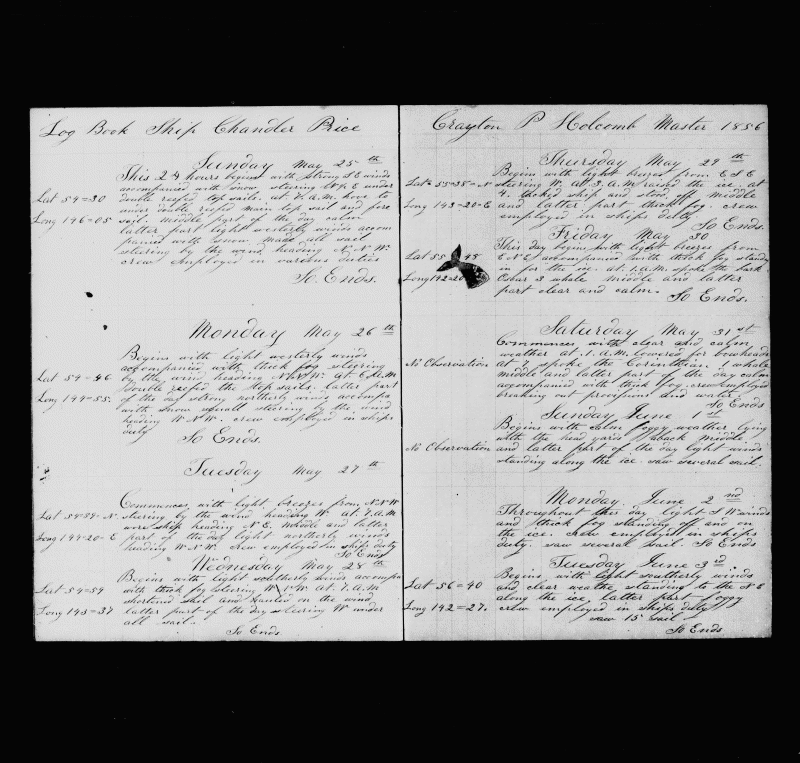 Log Book Ship Chandler Price
Sunday May 25th
This 24 hours begins with strong S E winds
accompanied with snow steering N E under
Lat 54=30
double reefed top sails. at 7. A.M. hove to
under double reefed main top sail and fore
Long 146=05
sail. middle part of the day calm
latter part light westerly winds accom
panied with snow made all sail
steering by the wind heading N.N.W.
crew employed in various duties
So Ends.
Monday May 26th
Begins with light westerly winds
accompanied with thick fog steering
Lat 54=46
by the wind heading N.N.W. at 6. A.M.
double reefed the top sails. latter part
Long 144=55.
of the day strong northerly winds accompa
with snow squall steering by the wind
heading W.N.W. crew employed in ships
duty
So Ends.
Tuesday May 27th
Commences with light breezes from N.N.W
Lat 54=54=N
steering by the wind heading W. at 7. A.M
wore ship heading N.E. middle and latter
Long 144=20=E
part of the day light northerly winds
heading W.N.W. crew employed on ships duty
So Ends
Wednesday May 28th
Begins with light southerly winds accompa
Lat 54=59
with thick fog steering W at. 7. A.M.
shortend sail and hauled on the wind
Long 143=37
latter part of the day steering W under
all sail.
So Ends
Crayton P Holcomb Master 1856
Thursday May 29th
Begins with light breezes from E S E
Lat=55=35=N
steering W. at 3. A.M. raised the ice. at
4. tacked ship and stood off middle
Long 143=20=E
and latter part thick fog crew
employed in ships duty
So Ends.
Friday May 30
This day begins with light breezes from
Lat 55 48
E N E accompanied with thick fog standing
in for the ice. at. 1. A.M. spoke the bark
Long 142=20
Oscar 3 whale middle and latter
part clear and calm.
So Ends.
Saturday May 31st
Commences with clear and calm
weather at. 1. A.M. lowered for bowheads
No Observation
at 7 spoke the Corinthian 1 whale
middle and latter part of the day calm
accompanied with thick fog. crew employed
breaking out provisions and water.
So Ends
Sunday June 1st
Begins with calm foggy weather. lying
with the head yards aback middle
No Observation
and latter part of the day light winds
standing along the ice. saw several sail.
Monday June 2nd
Throughout this day light S W winds
and thick fog standing off and on
the ice. crew employed in ships
duty. saw several sail. So Ends
Tuesday June 3rd
Begins with light southerly winds
Lat 56=40
and clear weather standing to the N E
along the ice. latter part foggy
Long 142=27.
crew employed in ships duty
saw 15 sail
So Ends